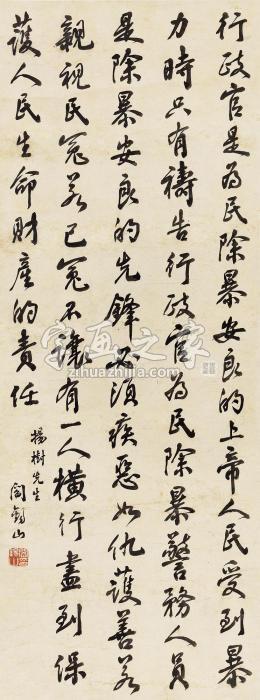 行政官是為民除暴安良的上帝人民受到暴
力時只有禱告行政官為民除暴警務人員
是除暴安良的先鋒必須疾惡如仇護善若
親視民冤若己冤不讓有一人橫行盡到保
護人民生命財產的責任
楊樹先生
閻錫山
字画之家
zihuazhijia.com